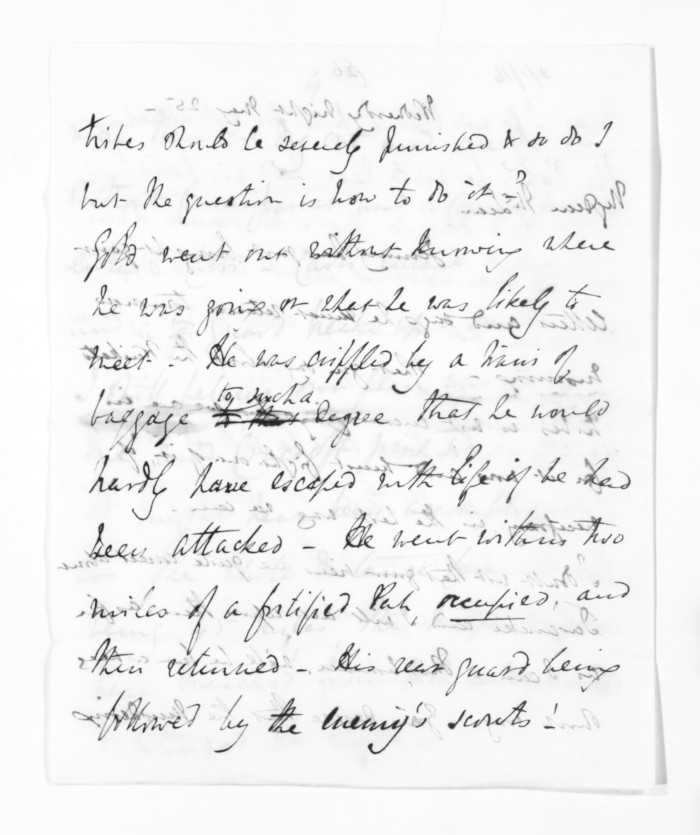 tribes should be severely punished & so do I
but the question is how to do it?
Gold went out without knowing where
he was going or what he was likely to
meet - He was crippled by a train of
baggage to such a degree that he would
hardly have escaped with life if he had
been attacked - He went within two
miles of a fortified Pah, occupied, and
then returned - His rear guard being
followed by the enemy's scouts!